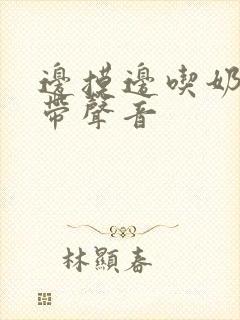 邊摸邊喫奶
帶聲音
林顯春